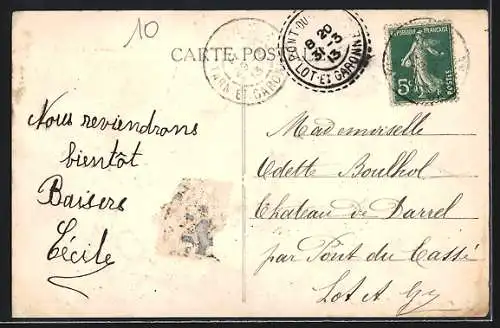 10
CARTE POSTALE
TARN ET GARONNE
PONT-DU-
8 20
20-3
13
LOT-ET-GARONNE
REPUBLIQUE FRANÇAISE
5c
POSTES
Nous reviendrons
bientôt
Baisers
Cécile
Mademoiselle
Odette Boulhol
Chateau de Darrel
par Pont du Cassé
Lot et Gne